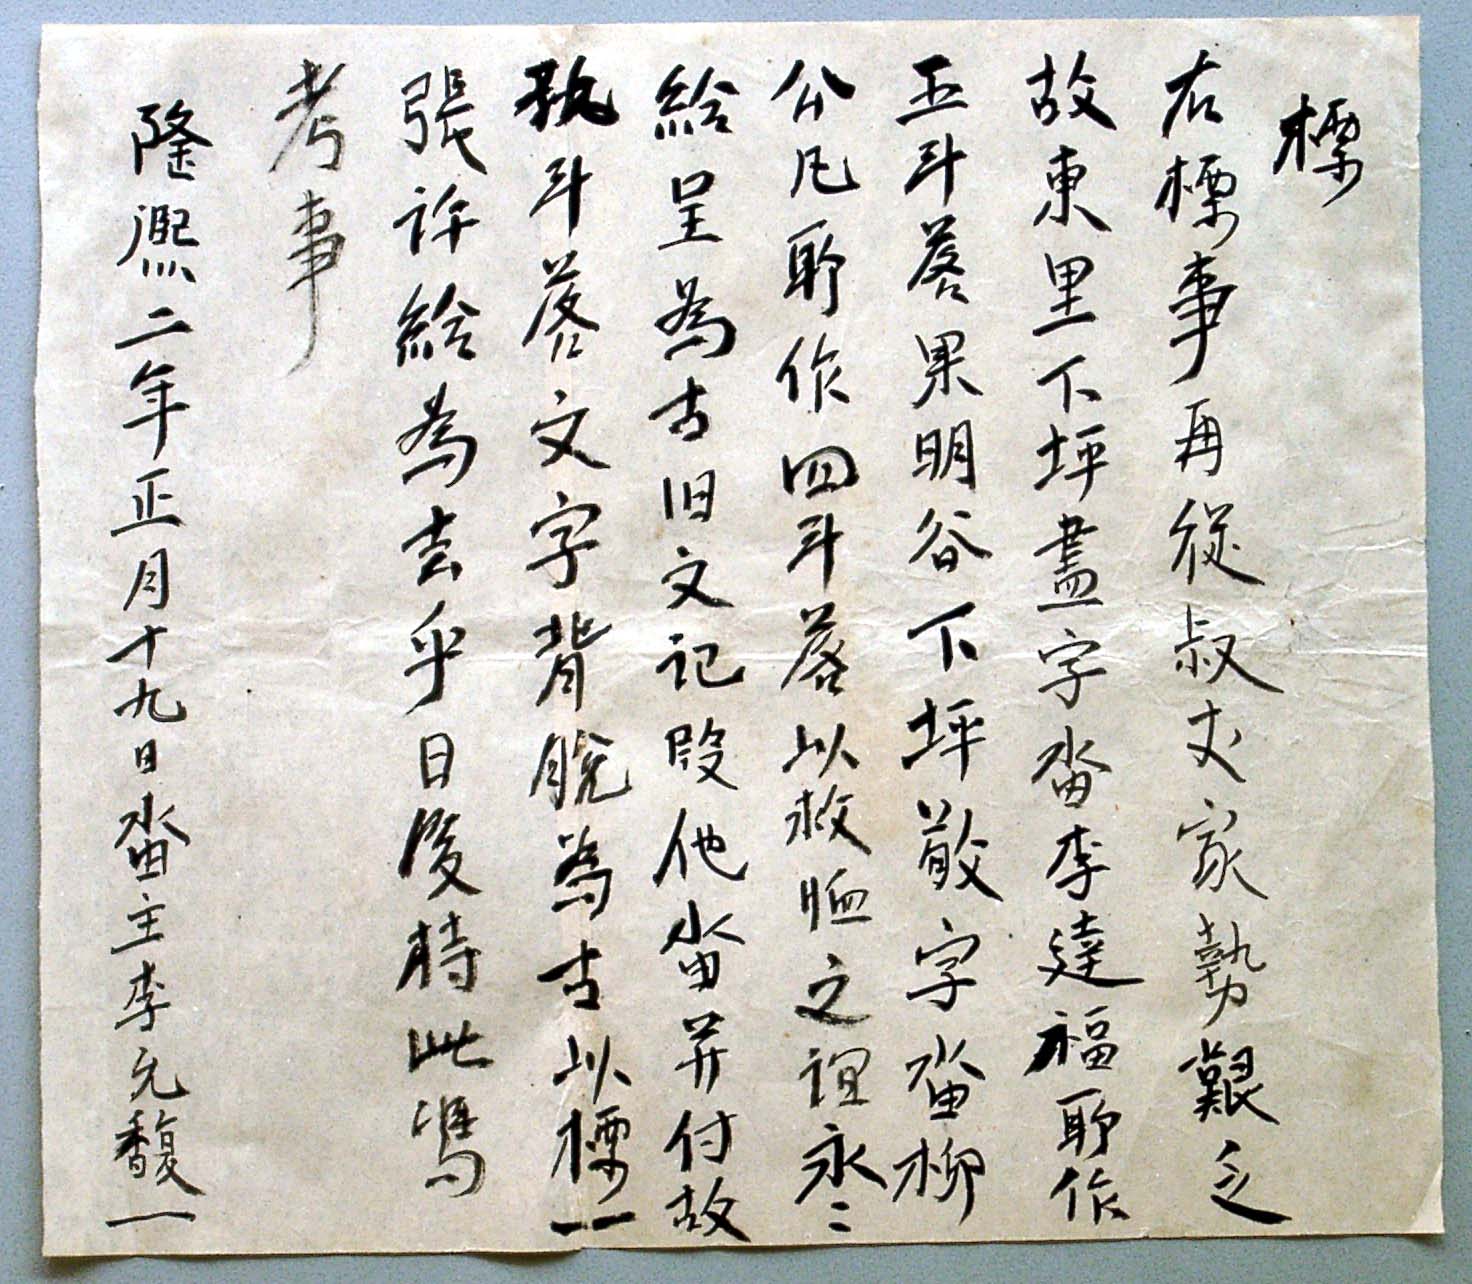 標
右標事再從叔丈家勢艱乏
故東里下坪盡字畓李達福耶作
五斗落果明谷下坪散字畓柳
公凡耶作四斗落以救恤之誼永〻
給呈為古旧文記段他畓并付故
執斗落文字背脫為古以標一
張許給為去乎日後持此憑
考事
隆熙二年正月十九日畓主李元馥